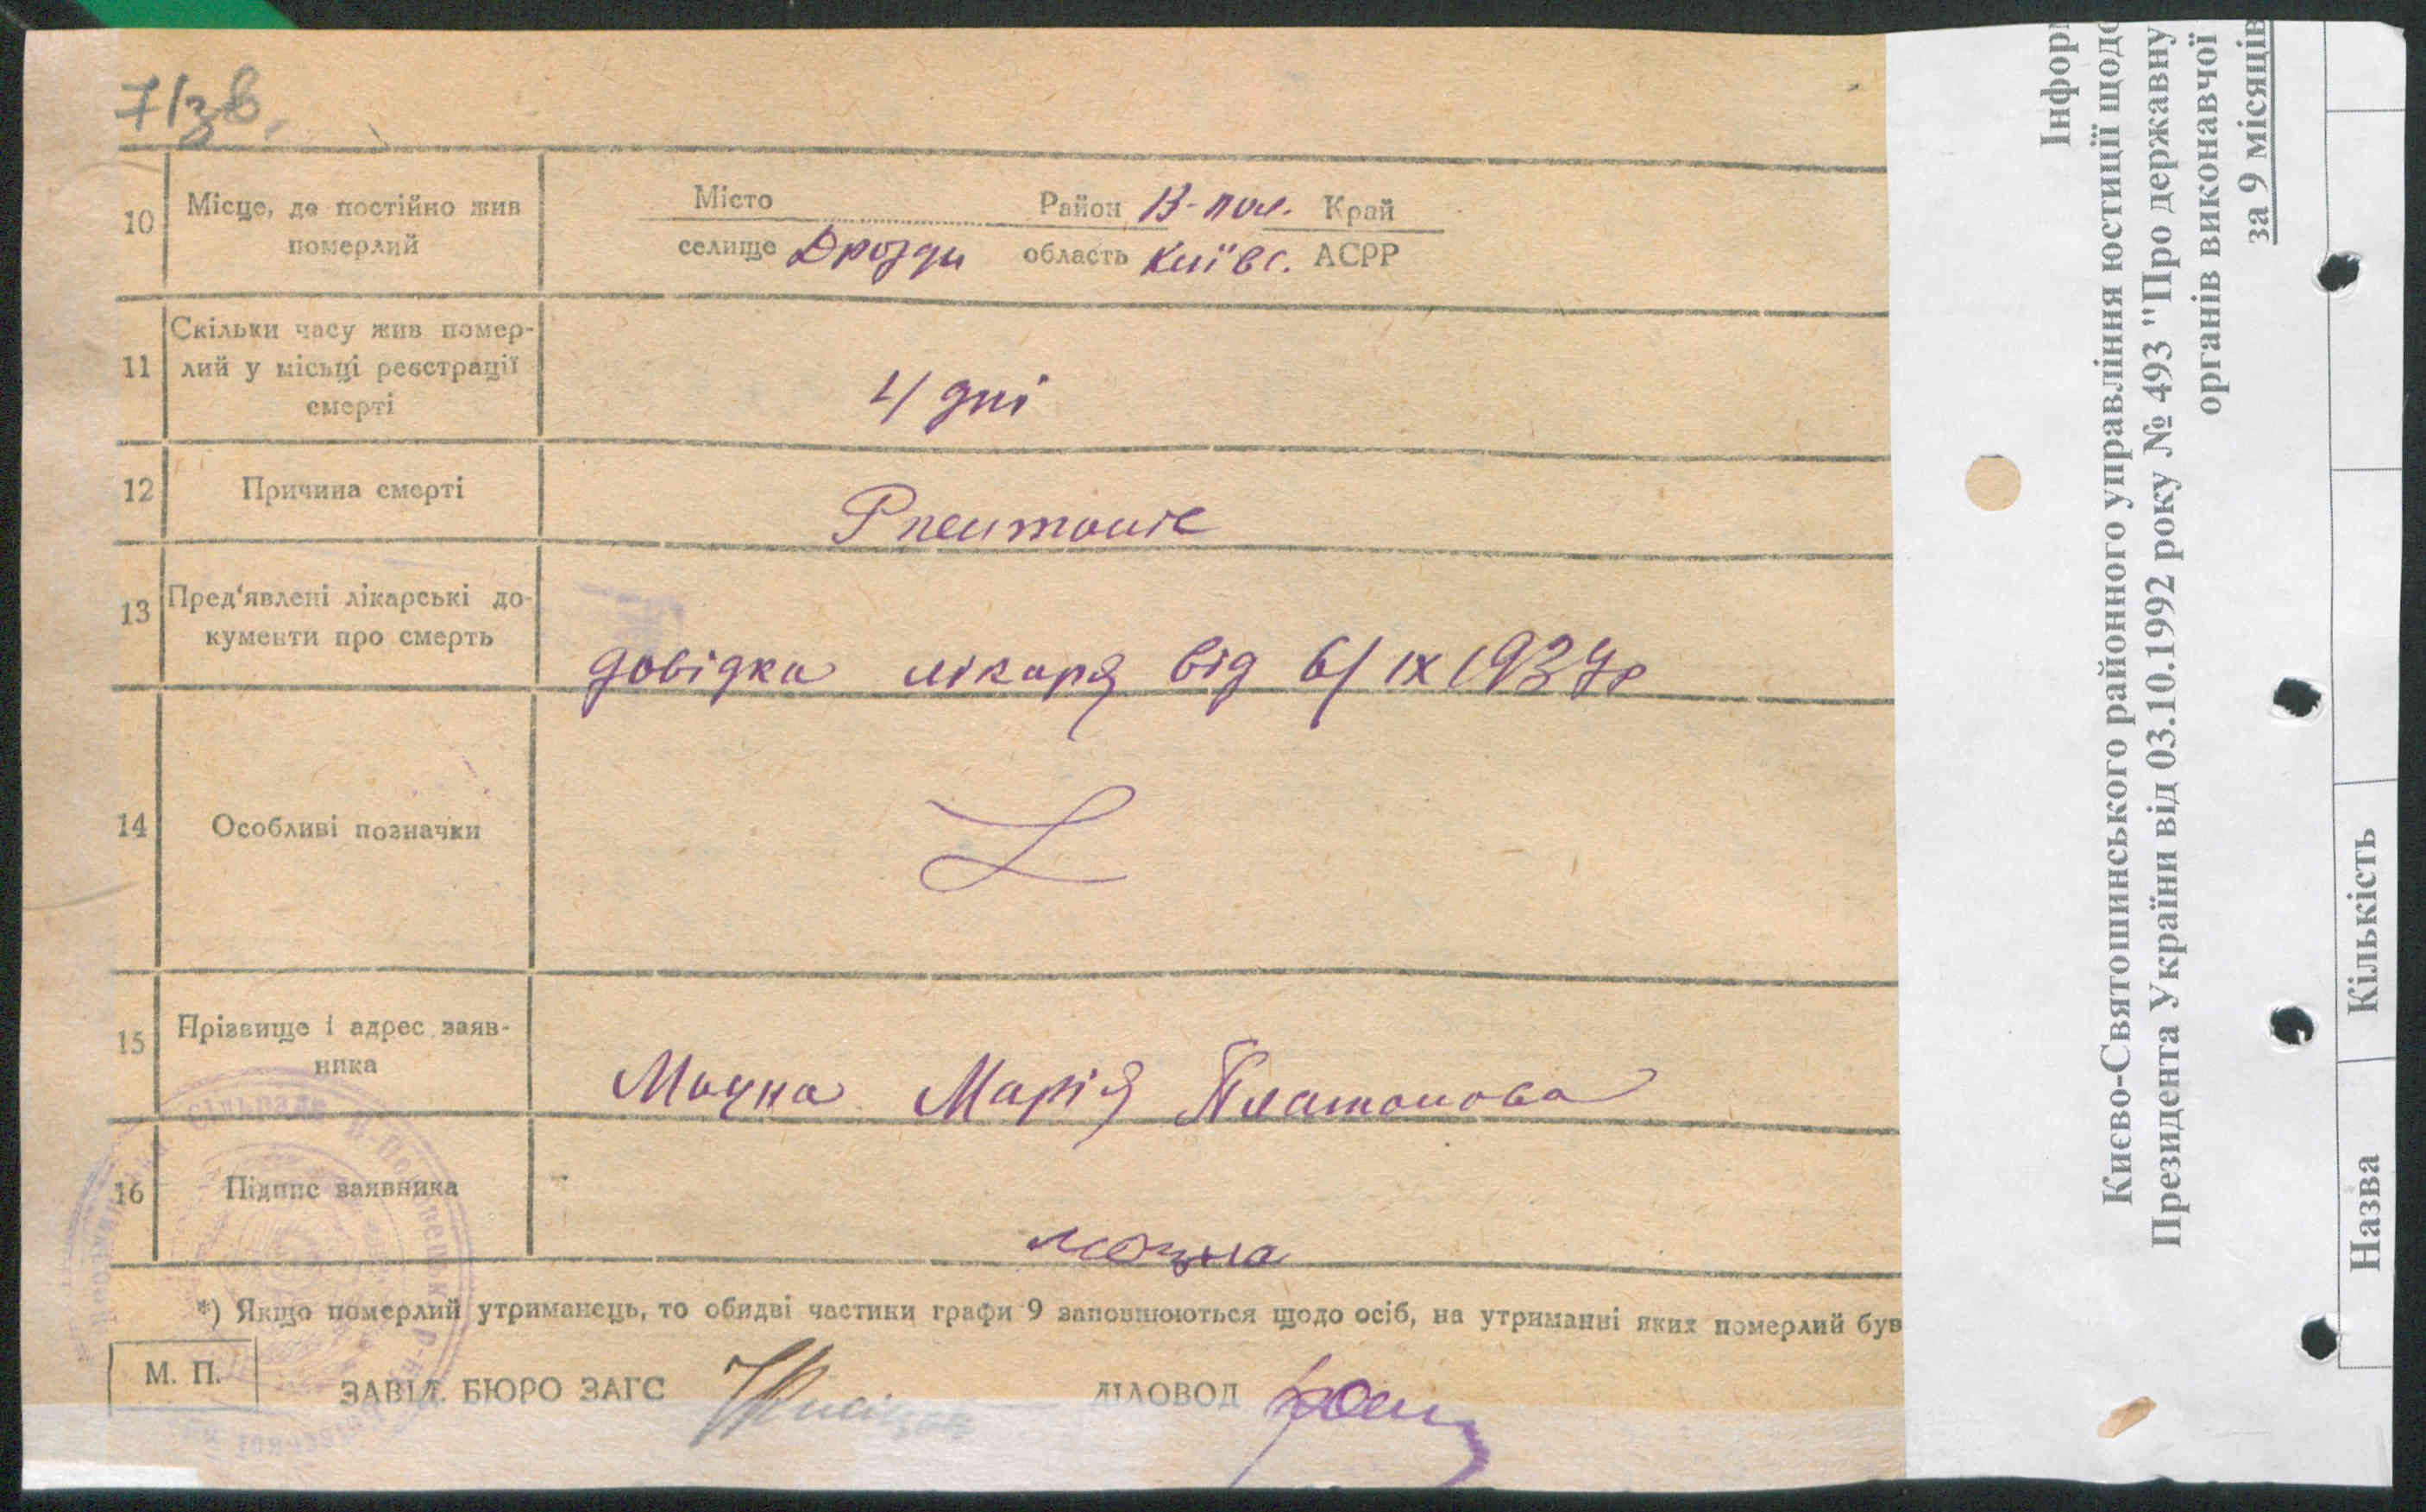 7/зв.
10
Місце, де постійно жив
померлий
Місто Район В-пол. Край
селище Дрозди область Київс. АСРР
11
Скільки часу жив помер-
лий у місьці реєстрації
смерті
4 дні
12
Причина смерті
Pneumonie
13
Пред'явлені лікарські до-
кументи про смерть
довідка лікаря від 6/IX 1937р
14
Особливі позначки
15
Прізвище і адрес заяв-
ника
Моцна Марія Платонова
16
Підпис заявника
моцна
*) Якщо померлий утриманець, то обидві частики графи 9 заповнюються щодо осіб, на утриманні яких померлий був
М. П.
ЗАВІД. БЮРО ЗАГС
ДІЛОВОД
сільрада В-Половецьк. р-н
Інфор
Києво-Святошинського районного управління юстиції щодо
Президента України від 03.10.1992 року № 493 "Про державну
органів виконавчої
за 9 місяців
Назва
Кількість